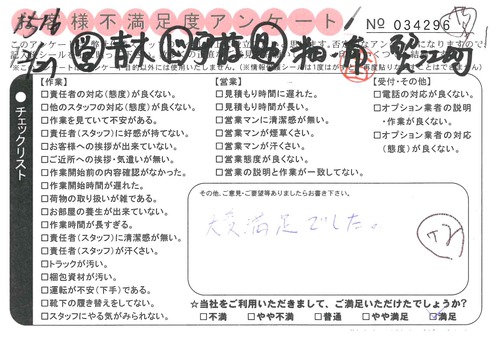 お客様不満足度アンケート
No 034296
15/6
【作業】
□責任者の対応(態度)が良くない。
□他のスタッフの対応(態度)が良くない。
□作業を見ていて不安がある。
□責任者(スタッフ)に好感が持てない。
□お客様への挨拶が出来ていない。
□ご近所への挨拶・気遣いが無い。
□作業開始前の内容確認がなかった。
□作業開始時間が遅れた。
□荷物の取り扱いが雑である。
□お部屋の養生が出来ていない。
□作業時間が長すぎる。
□責任者(スタッフ)に清潔感が無い。
□責任者(スタッフ)が汗くさい。
□トラックが汚い。
□梱包資材が汚い。
□運転が不安(下手)である。
□靴下の履き替えをしてない。
□スタッフにやる気がみられない。
【営業】
□見積もり時間に遅れた。
□見積もり時間が長い。
□営業マンに清潔感が無い。
□営業マンが煙草くさい。
□営業マンが汗くさい。
□営業態度が良くない。
□営業の説明と作業が一致してない。
【受付・その他】
□電話の対応が良くない。
□オプション業者の説明
・作業が良くない。
□オプション業者の対応
(態度)が良くない。
●チェックリスト
その他、ご意見・ご要望等ありましたらお書き下さい。
大変満足でした。
☆当社をご利用いただきまして、ご満足いただけたでしょうか?
□不満 □やや不満 □普通 □やや満足 □満足